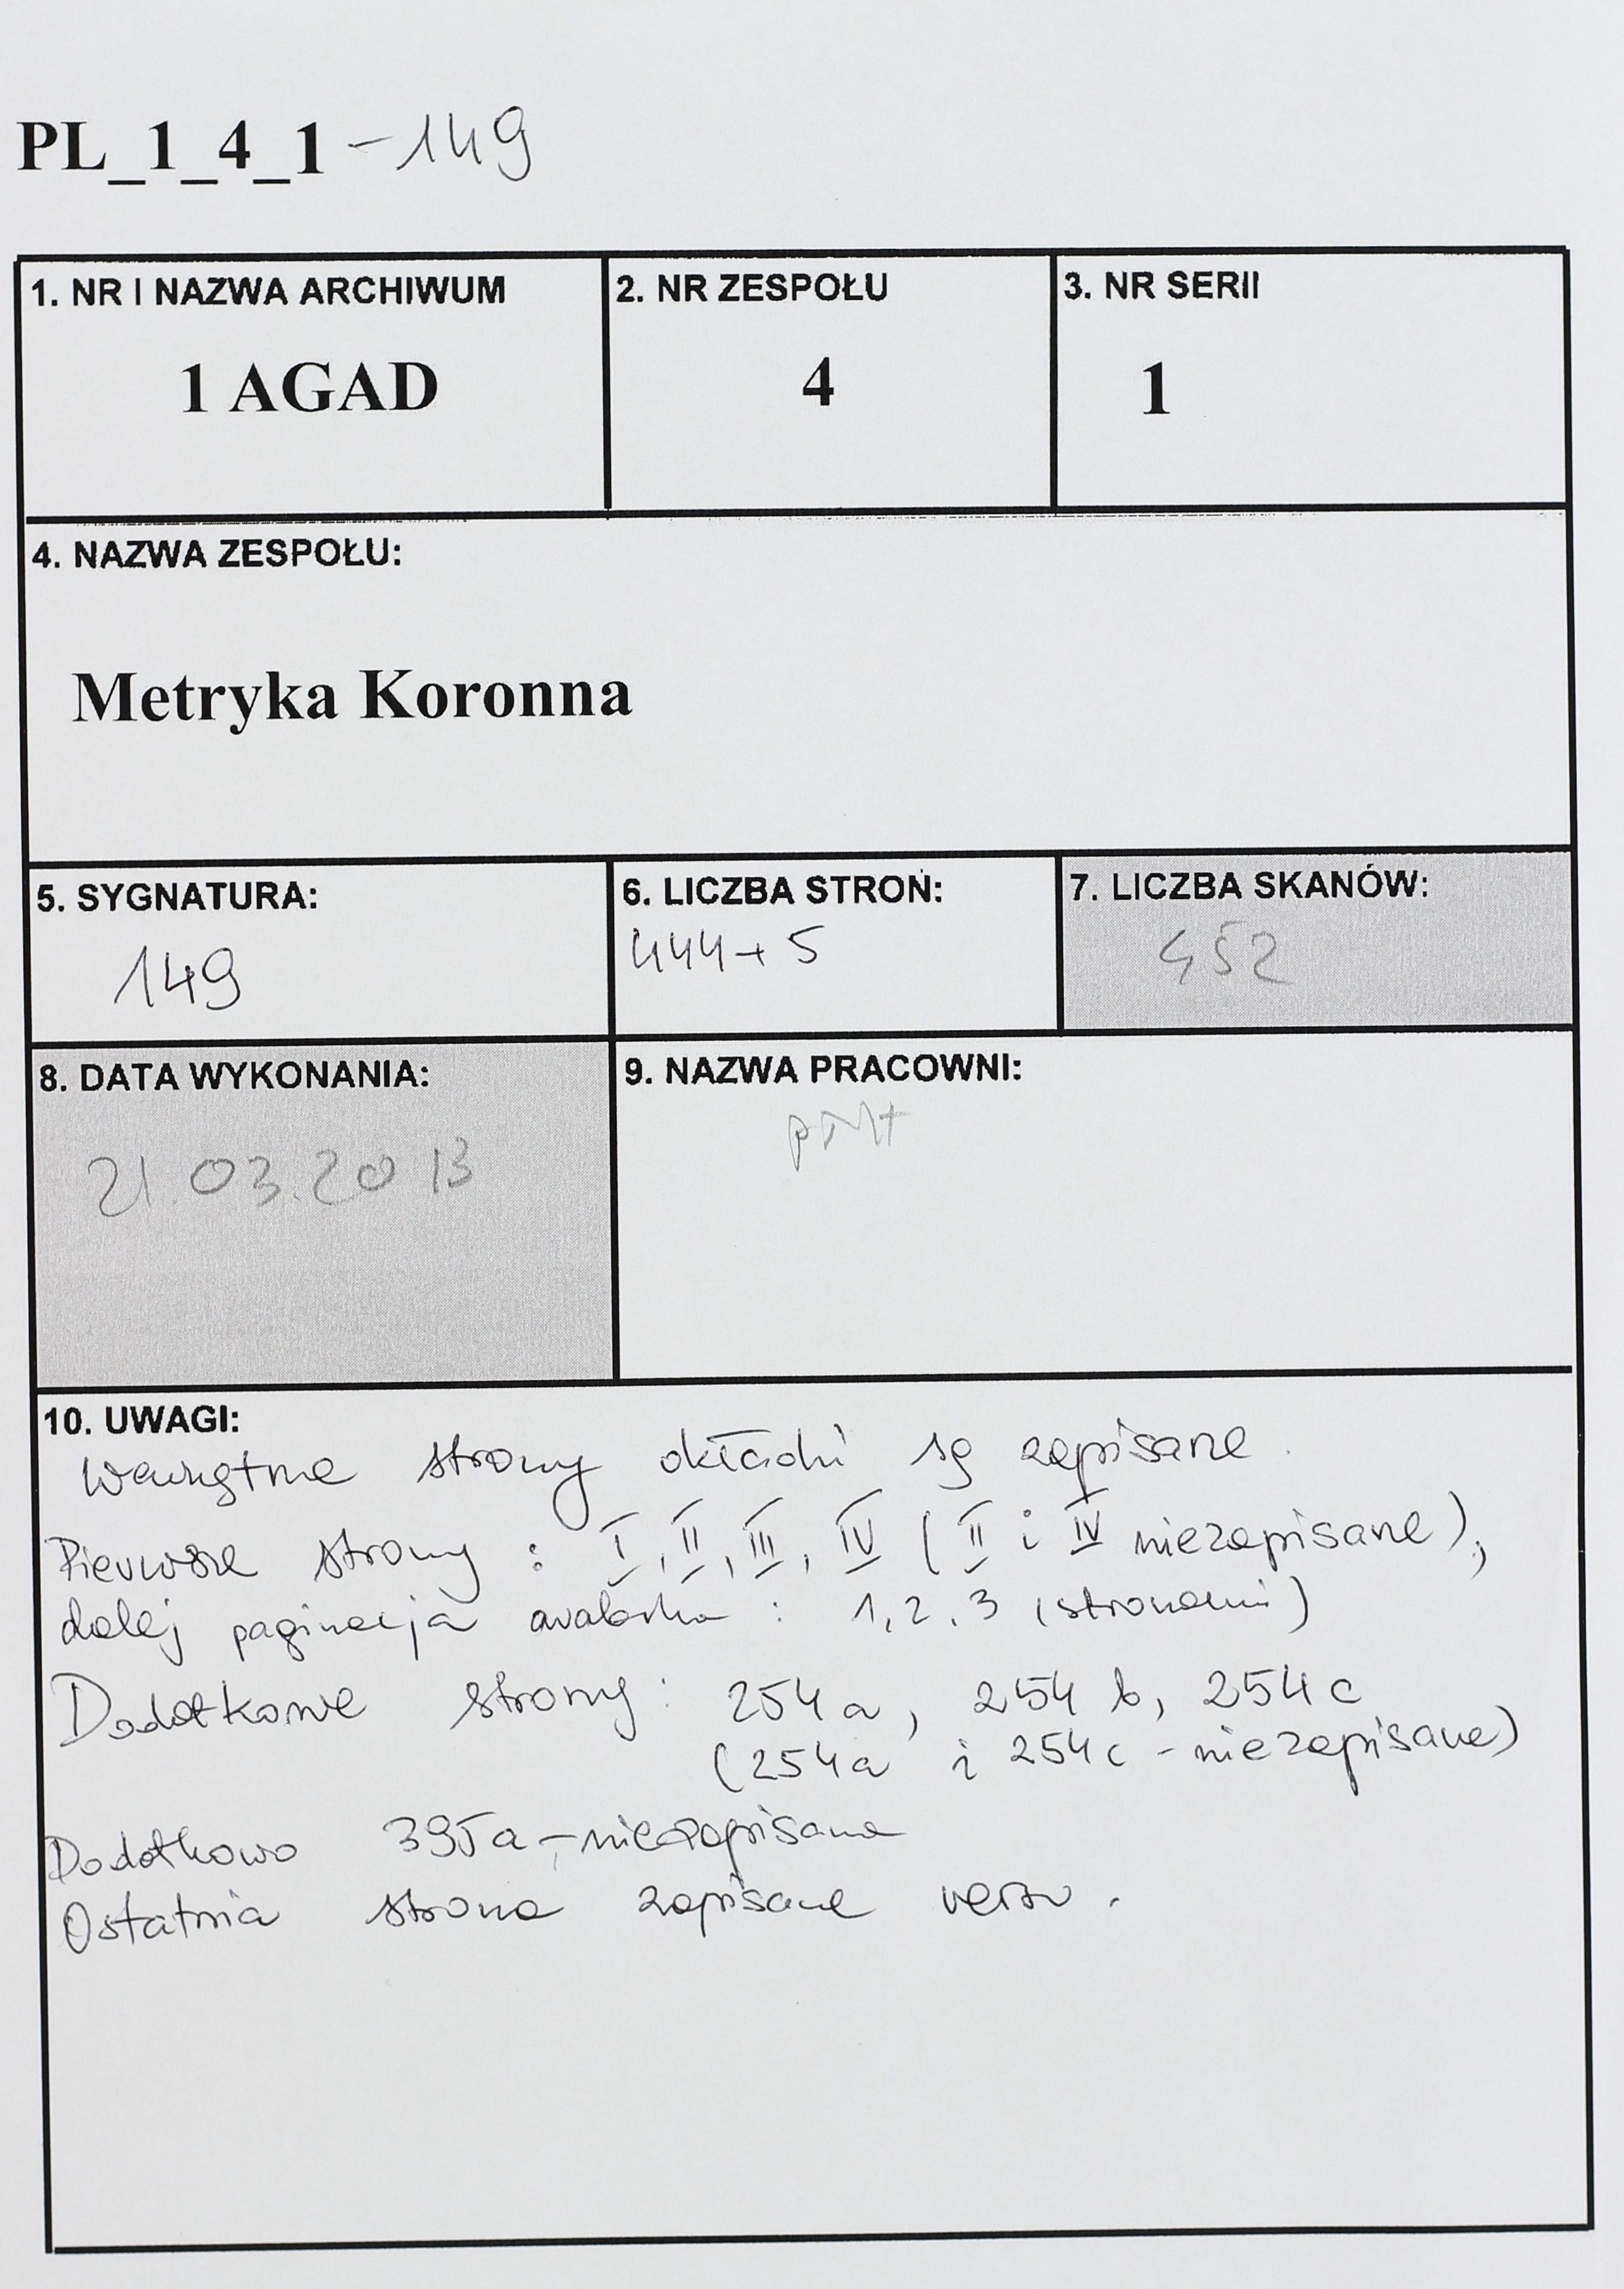 PL_1_4_1 - 149
1. NR I NAZWA ARCHIWUM
1 AGAD
2. NR ZESPOŁU
4
3. NR SERII
1
4. NAZWA ZESPOŁU:
Metryka Koronna
5. SYGNATURA:
149
6. LICZBA STRON:
444 + 5
7. LICZBA SKANÓW:
452
8. DATA WYKONANIA:
21.03.2013
9. NAZWA PRACOWNI:
10. UWAGI:
Wewnętrzne strony okładki są zapisane.
Pierwsze strony : I, II, III, IV ( II i IV niezapisane),
dalej paginacja : 1, 2, 3 (stronami)
Dodatkowe strony: 254a, 254b, 254c
(254a i 254c - niezapisane)
Dodatkowo 395a - niezapisana
Ostatnia strona zapisane verso.